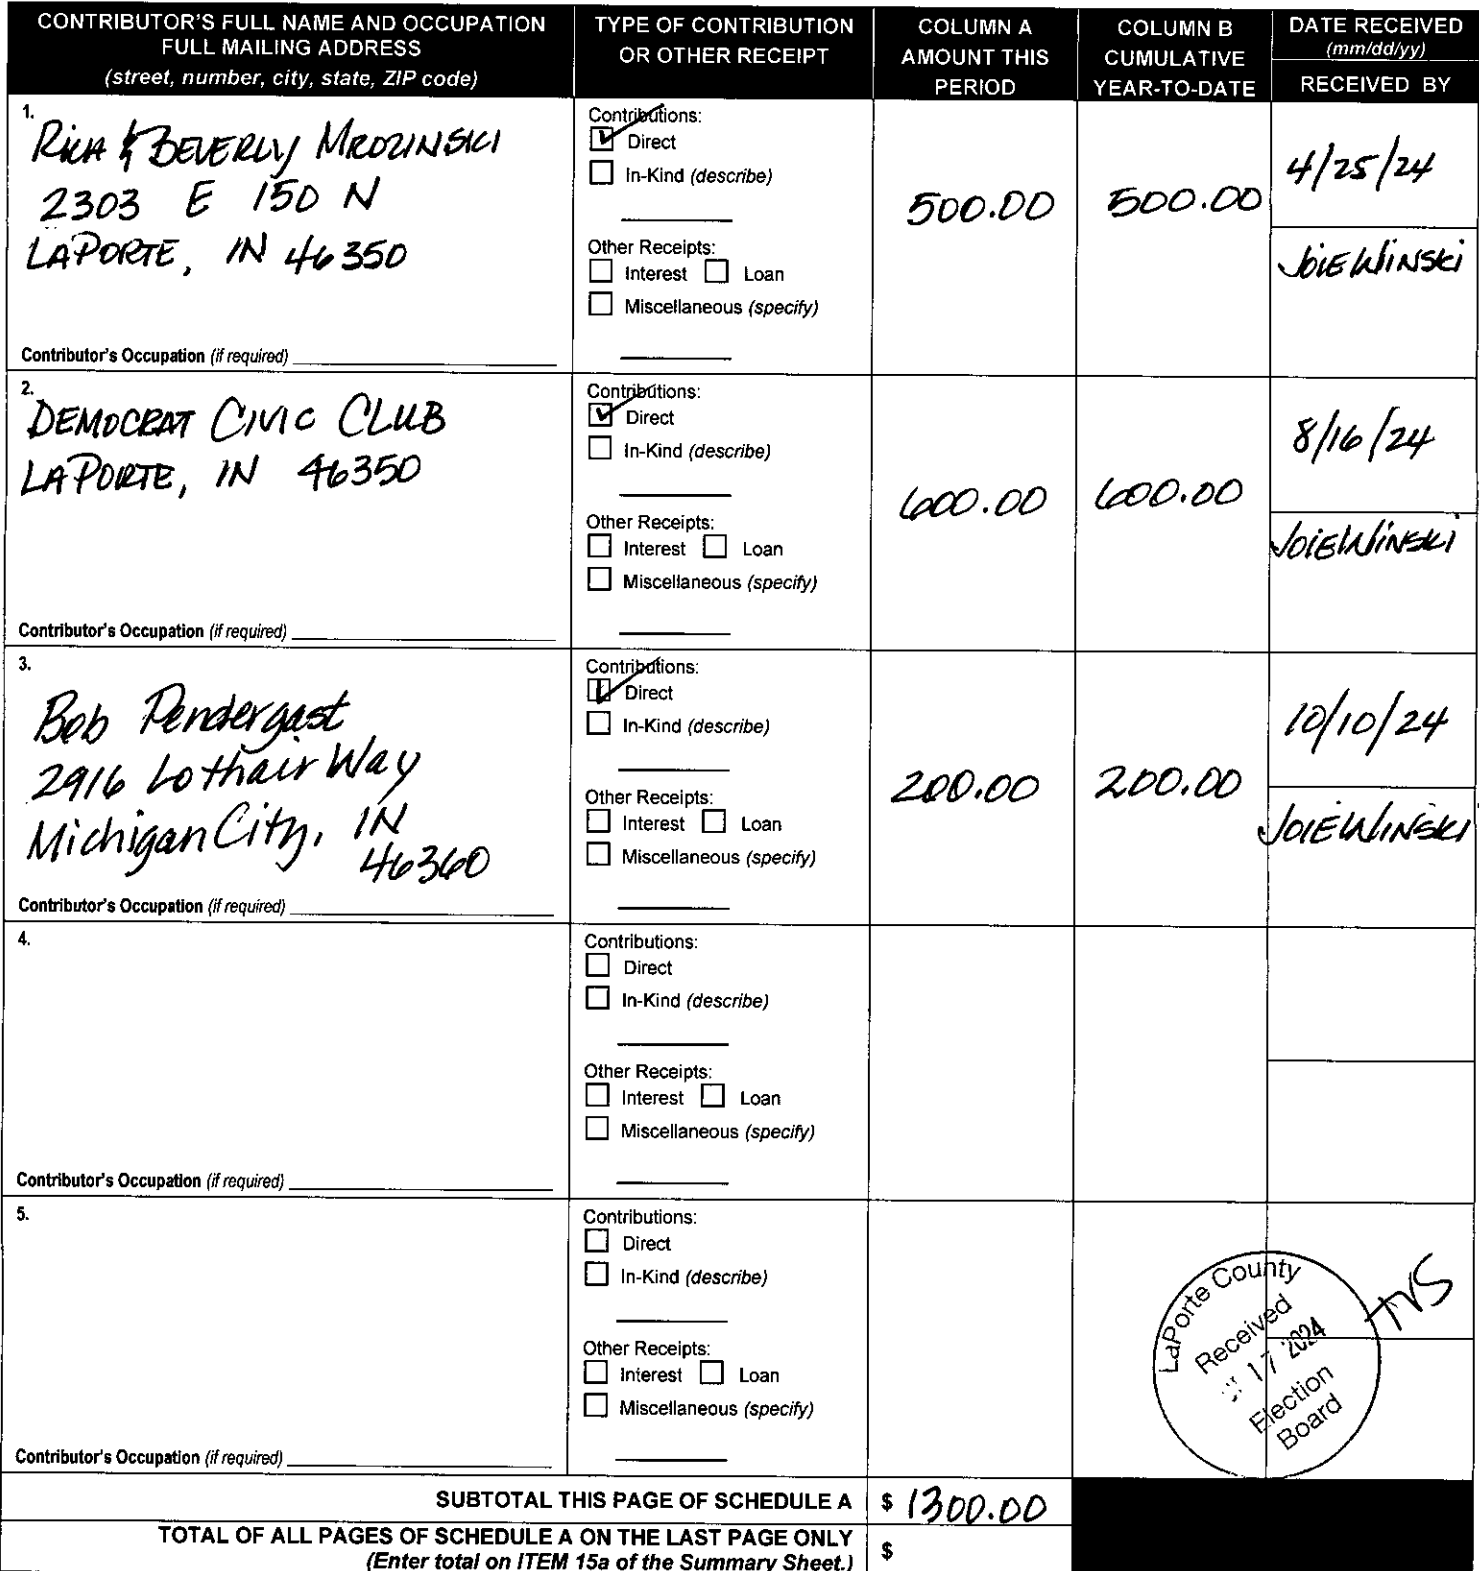 CONTRIBUTOR'S FULL NAME AND OCCUPATION
FULL MAILING ADDRESS
(street, number, city, state, ZIP code)
TYPE OF CONTRIBUTION
OR OTHER RECEIPT
COLUMN A
AMOUNT THIS
PERIOD
COLUMN B
CUMULATIVE
YEAR-TO-DATE
DATE RECEIVED
(mm/dd/yy)
RECEIVED BY
1.
& BEVERLY MROZINSKI
2303 E 150 N
LAPORTE, IN 46350
Contributor's Occupation (if required)
Contributions:
Direct
In-Kind (describe)
Other Receipts:
Interest Loan
Miscellaneous (specify)
500.00
500.00
4/25/24
JOIE WINSKI
2.
DEMOCRAT CIVIC CLUB
LAPORTE, IN 46350
Contributor's Occupation (if required)
Contributions:
Direct
In-Kind (describe)
Other Receipts:
Interest Loan
Miscellaneous (specify)
600.00
600.00
8/16/24
JOIE WINSKI
3.
Bob Pendergast
2916 Lothair Way
Michigan City, IN
46360
Contributor's Occupation (if required)
Contributions:
Direct
In-Kind (describe)
Other Receipts:
Interest Loan
Miscellaneous (specify)
200.00
200.00
10/10/24
JOIE WINSKI
4.
Contributor's Occupation (if required)
Contributions:
Direct
In-Kind (describe)
Other Receipts:
Interest Loan
Miscellaneous (specify)
5.
Contributor's Occupation (if required)
Contributions:
Direct
In-Kind (describe)
Other Receipts:
Interest Loan
Miscellaneous (specify)
LaPorte County
Received
17 2024
Election
Board
SUBTOTAL THIS PAGE OF SCHEDULE A $ 1300.00
TOTAL OF ALL PAGES OF SCHEDULE A ON THE LAST PAGE ONLY $
(Enter total on ITEM 15a of the Summary Sheet.)